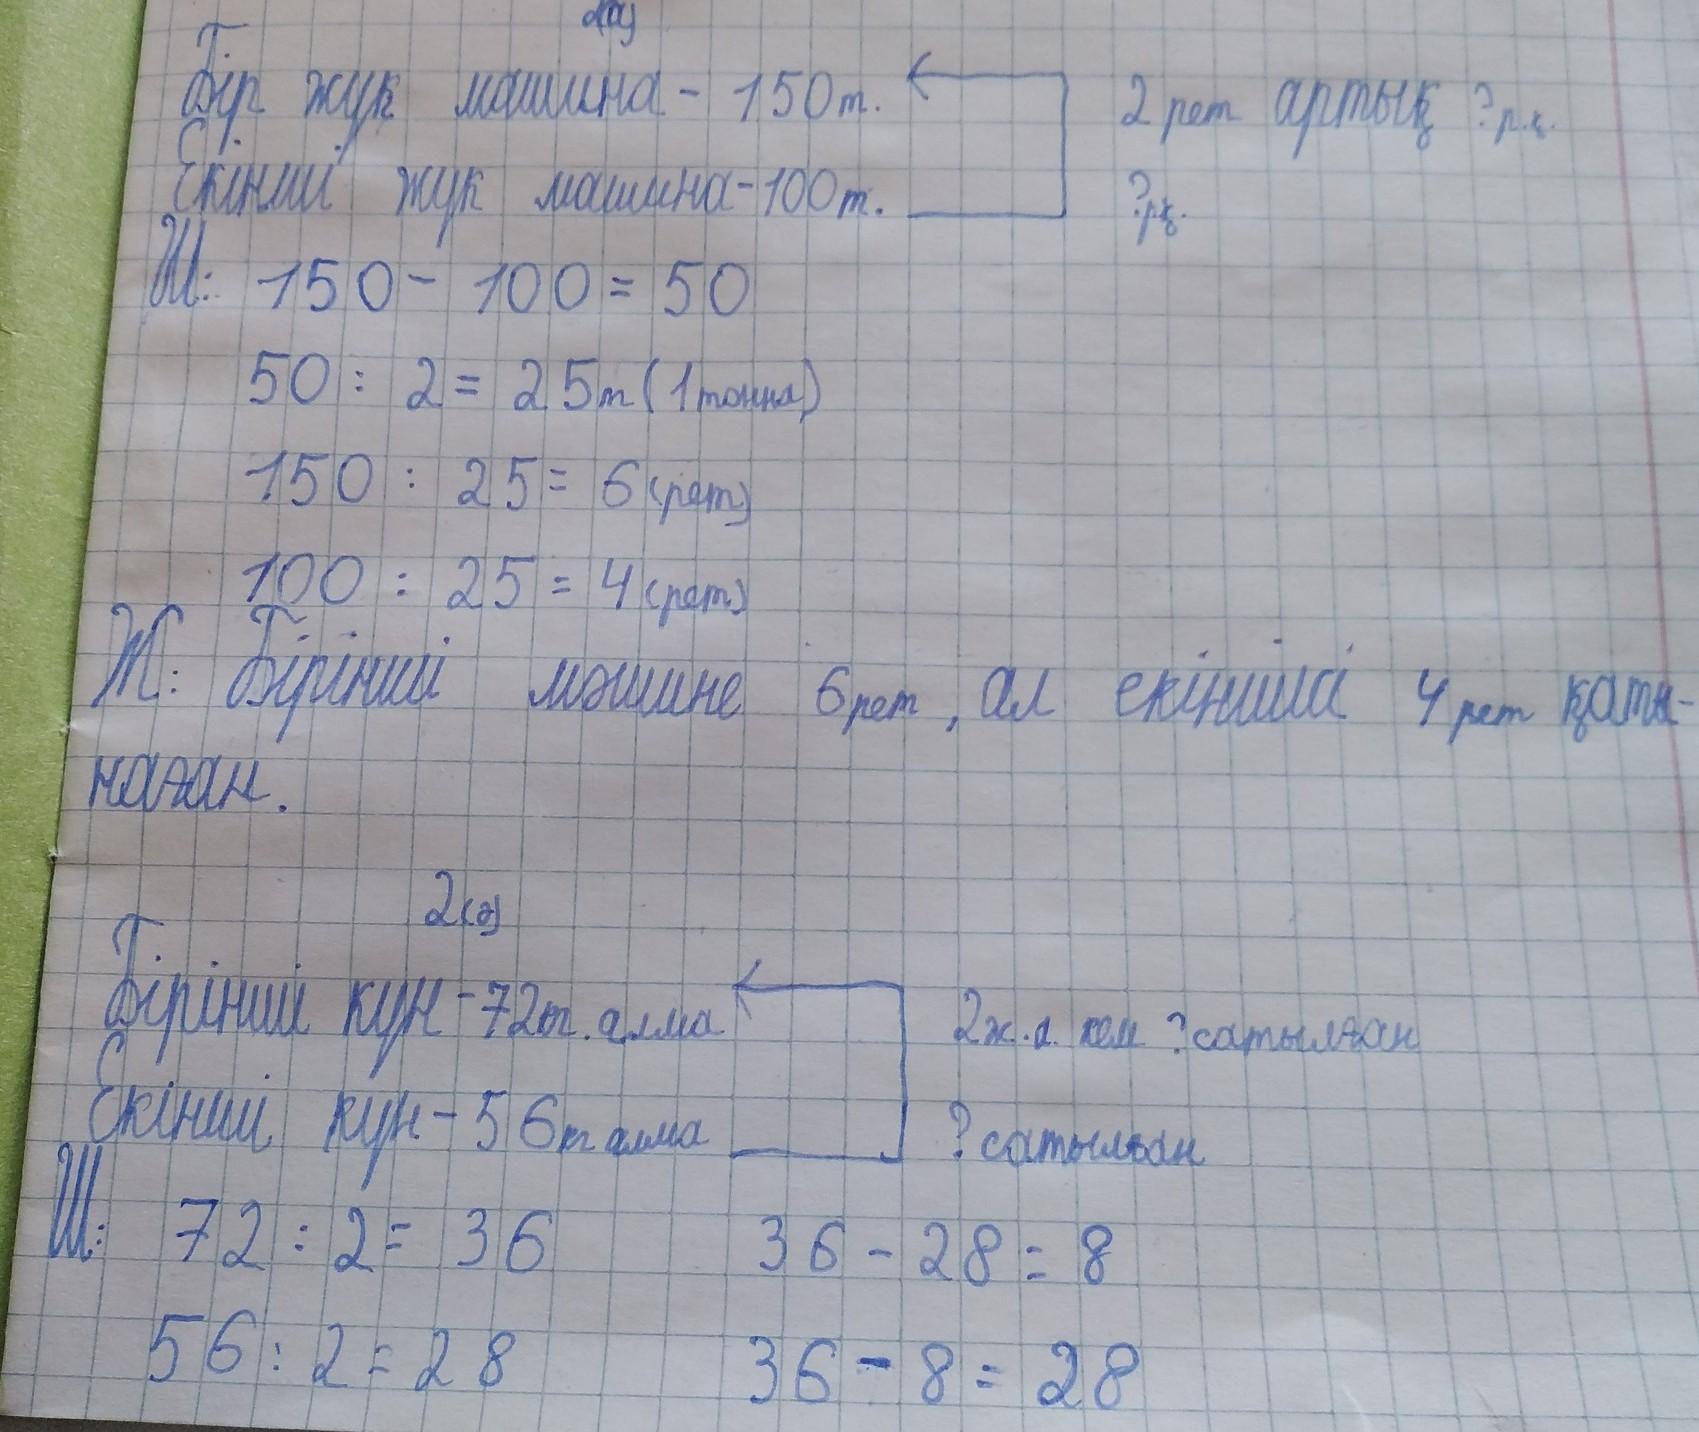 Бір жук машина - 150т.
2 рет артық ? р.қ.
Екінші жук машина - 100т.
? рқ.
Ш: 150 - 100 = 50
50 : 2 = 25т (1 тонна)
150 : 25 = 6 (рет)
100 : 25 = 4 (рет)
Ж: Бірінші машине 6 рет, ал екінші 4 рет қаты-
наған.
2(ә)
Бірінші кун - 72т. алма
2ж.а. кем ? сатылған
Екінші кун - 56т алма
? сатылған
Ш: 72 : 2 = 36 36 - 28 = 8
56 : 2 = 28 36 - 8 = 28